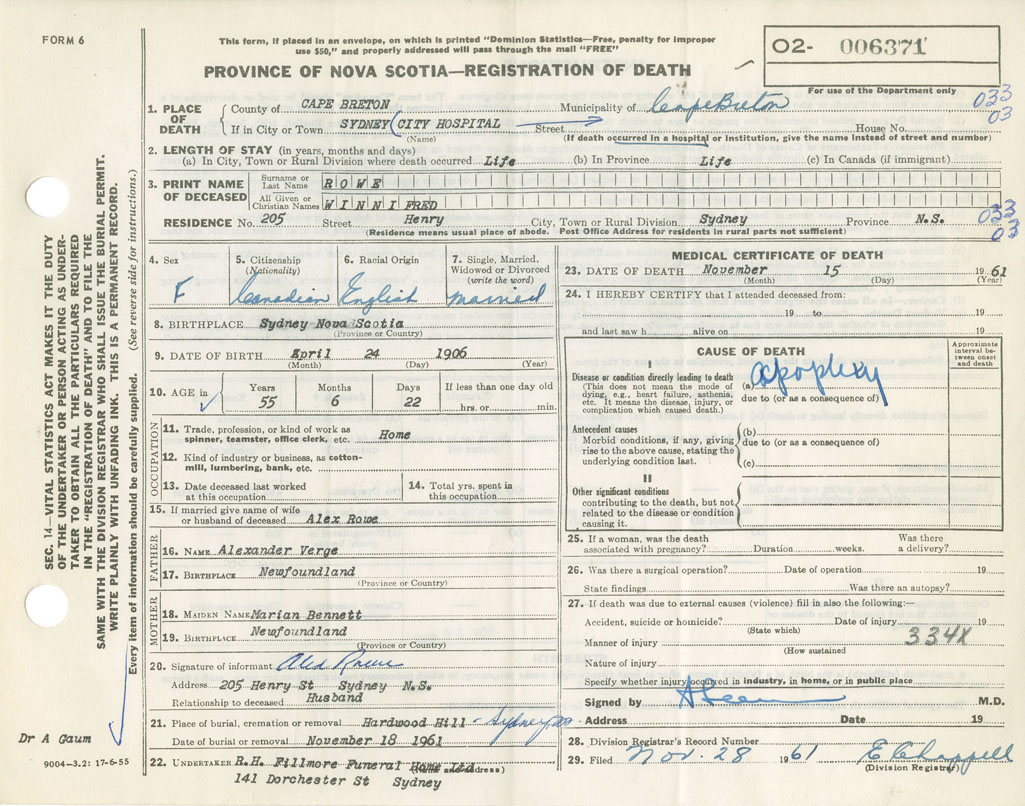 FORM 6
This form, if placed in an envelope, on which is printed "Dominion Statistics—Free, penalty for improper
use $50," and properly addressed will pass through the mail "FREE"
O2- 006371
PROVINCE OF NOVA SCOTIA—REGISTRATION OF DEATH
For use of the Department only
1. PLACE OF DEATH
County of CAPE BRETON Municipality of Cape Breton 033
If in City or Town SYDNEY (CITY HOSPITAL Street House No. 03
(Name) (If death occurred in a hospital or Institution, give the name instead of street and number)
2. LENGTH OF STAY (in years, months and days)
(a) In City, Town or Rural Division where death occurred Life (b) In Province Life (c) In Canada (if immigrant)
3. PRINT NAME OF DECEASED
Surname or Last Name ROWE
All Given or Christian Names WINNIFRED
RESIDENCE No. 205 Street Henry City, Town or Rural Division Sydney Province N.S. 033
03
(Residence means usual place of abode. Post Office Address for residents in rural parts not sufficient)
4. Sex
F
5. Citizenship
(Nationality)
Canadian
6. Racial Origin
English
7. Single, Married,
Widowed or Divorced
(write the word)
married
8. BIRTHPLACE Sydney Nova Scotia
(Province or Country)
9. DATE OF BIRTH April 24 1906
(Month) (Day) (Year)
10. AGE in
Years Months Days If less than one day old
55 6 22 hrs. or min.
OCCUPATION
11. Trade, profession, or kind of work as
spinner, teamster, office clerk, etc. Home
12. Kind of industry or business, as cotton-
mill, lumbering, bank, etc.
13. Date deceased last worked
at this occupation
14. Total yrs. spent in
this occupation
15. If married give name of wife
or husband of deceased Alex Rowe
FATHER
16. NAME Alexander Verge
17. BIRTHPLACE Newfoundland
(Province or Country)
MOTHER
18. MAIDEN NAME Marian Bennett
19. BIRTHPLACE Newfoundland
(Province or Country)
20. Signature of informant Alex Rowe
Address 205 Henry St Sydney N.S.
Relationship to deceased Husband
21. Place of burial, cremation or removal Hardwood Hill - Sydney
Date of burial or removal November 18 1961
22. UNDERTAKER R.H. Fillmore Funeral Home Ltd
(Name and address)
141 Dorchester St Sydney
MEDICAL CERTIFICATE OF DEATH
23. DATE OF DEATH November 15 1961
(Month) (Day) (Year)
24. I HEREBY CERTIFY that I attended deceased from:
19 to 19
and last saw h alive on 19
CAUSE OF DEATH
Approximate
interval be-
tween onset
and death
I
Disease or condition directly leading to death
(This does not mean the mode of
dying, e.g., heart failure, asthenia,
etc. It means the disease, injury, or
complication which caused death.)
(a) apoplexy
due to (or as a consequence of)
Antecedent causes
Morbid conditions, if any, giving
rise to the above cause, stating the
underlying condition last.
(b)
due to (or as a consequence of)
(c)
II
Other significant conditions
contributing to the death, but not
related to the disease or condition
causing it.
25. If a woman, was the death
associated with pregnancy? Duration weeks. Was there
a delivery?
26. Was there a surgical operation? Date of operation 19
State findings Was there an autopsy?
27. If death was due to external causes (violence) fill in also the following:—
Accident, suicide or homicide? Date of injury 19
(State which)
Manner of injury 334X
(How sustained
Nature of injury
Specify whether injury occurred in industry, in home, or in public place
Signed by M.D.
Address Date 19
28. Division Registrar's Record Number
29. Filed Nov. 28 1961 E Chappell
(Division Registrar)
SEC. 14—VITAL STATISTICS ACT MAKES IT THE DUTY
OF THE UNDERTAKER OR PERSON ACTING AS UNDER-
TAKER TO OBTAIN ALL THE PARTICULARS REQUIRED
IN THE "REGISTRATION OF DEATH" AND TO FILE THE
SAME WITH THE DIVISION REGISTRAR WHO SHALL ISSUE THE BURIAL PERMIT.
WRITE PLAINLY WITH UNFADING INK. THIS IS A PERMANENT RECORD.
Every item of information should be carefully supplied. (See reverse side for instructions.)
Dr A Gaum
9004-3.2: 17-6-55